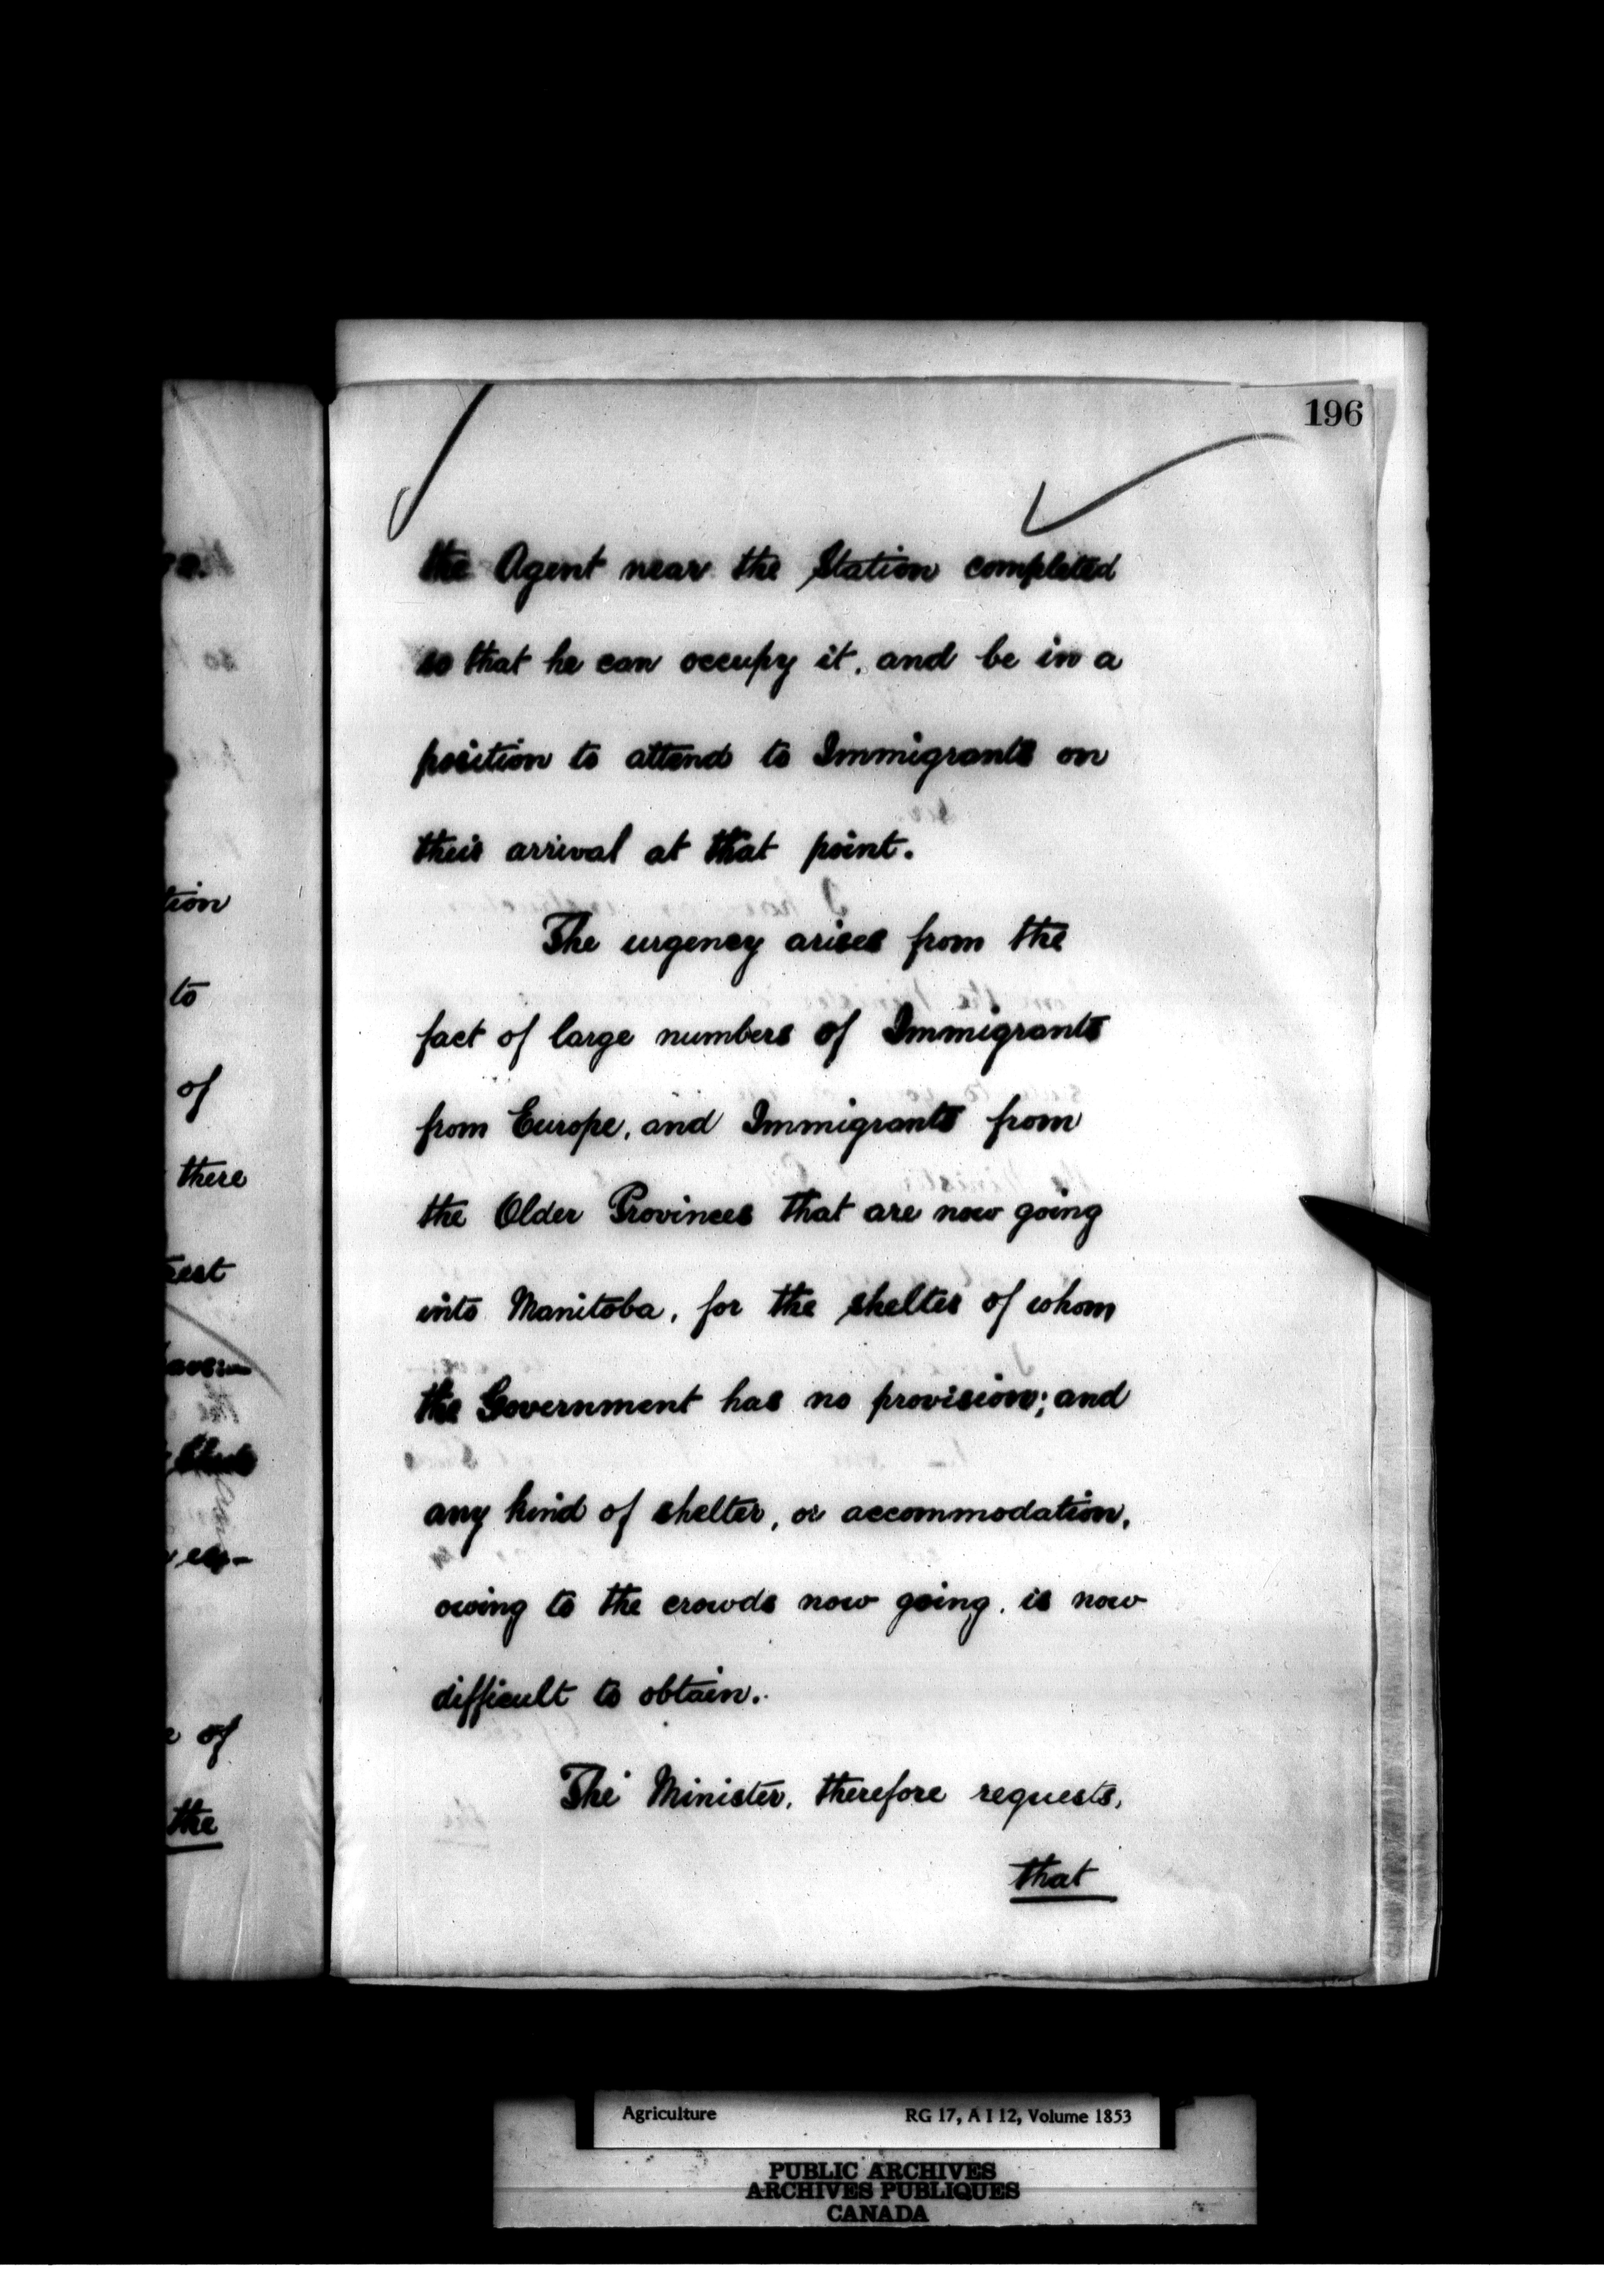 196
the Agent near the Station completed
so that he can occupy it, and be in a
position to attend to Immigrants on
their arrival at that point.
The urgency arises from the
fact of large numbers of Immigrants
from Europe, and Immigrants from
the Older Provinces that are now going
into Manitoba, for the shelter of whom
the Government has no provision; and
any kind of shelter, or accommodation,
owing to the crowds now going, is now
difficult to obtain.
The Minister, therefore requests,
that
tion
to
of
there
of
the
Agriculture RG 17, A I 12, Volume 1853
PUBLIC ARCHIVES
ARCHIVES PUBLIQUES
CANADA